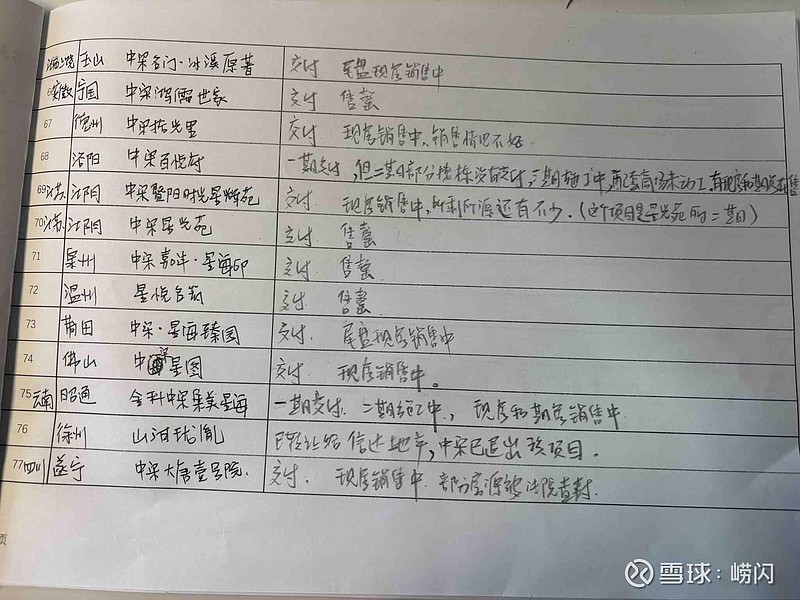 江西上饶 玉山 中梁名门·冰溪原著 交付 尾盘现房销售中
安徽 宁国 中梁鸿儒世家 交付 售罄
67 德州 中梁拾光里 交付 现房销售中、销售情况不好.
68 沭阳 中梁百悦府 一期交付,但二期部分楼栋没有交付,三期施工中,
69 江苏 江阴 中梁暨阳时光星辉苑 交付 现房销售中,所剩房源还有不少.(这个项目是星光苑的二期)
70 江苏 江阴 中梁星光苑 交付 售罄
71 泉州 中梁嘉华·星海印 交付 售罄
72 温州 星悦名 交付 售罄
73 莆田 中梁·星海臻园 交付. 尾盘现房销售中
74 佛山 中梁星图 交付. 现房销售中。
75 云南 昭通 金科中梁集美星海 一期交付. 二期施工中., 现房和期房销售中.
76 徐州 山河珑胤 已转让给信达地产,中梁已退出该项目.
77 四川 遂宁 中梁大唐壹号院. 交付. 现房销售中. 部分房源被法院查封.
页
雪球:崂闪